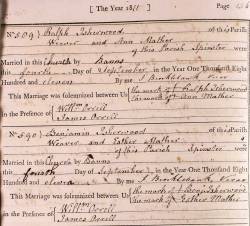 [The Year 1811]
No 589 } Ralph Isherwood of this Parish
Weaver and Ann Mather
of this Parish Spinster were
Married in this Church by Banns
this fourth Day of September in the Year One Thousand Eight
Hundred and eleven By me J Brocklebank Vicar
This Marriage was solemnized between Us the mark of Ralph Isherwood
the mark of Ann Mather
In the Presence of Willm Orrill
James Orrill
No 590 } Benjamin Isherwood of this Parish
Weaver and Esther Mather
of this Parish Spinster were
Married in this Church by Banns
this fourth Day of September in the Year One Thousand Eight
Hundred and eleven By me J Brocklebank Vicar
This Marriage was solemnized between Us the mark of Benj Isherwood
the mark of Esther Mather
in the Presence of Willm Orrill
James Orrill